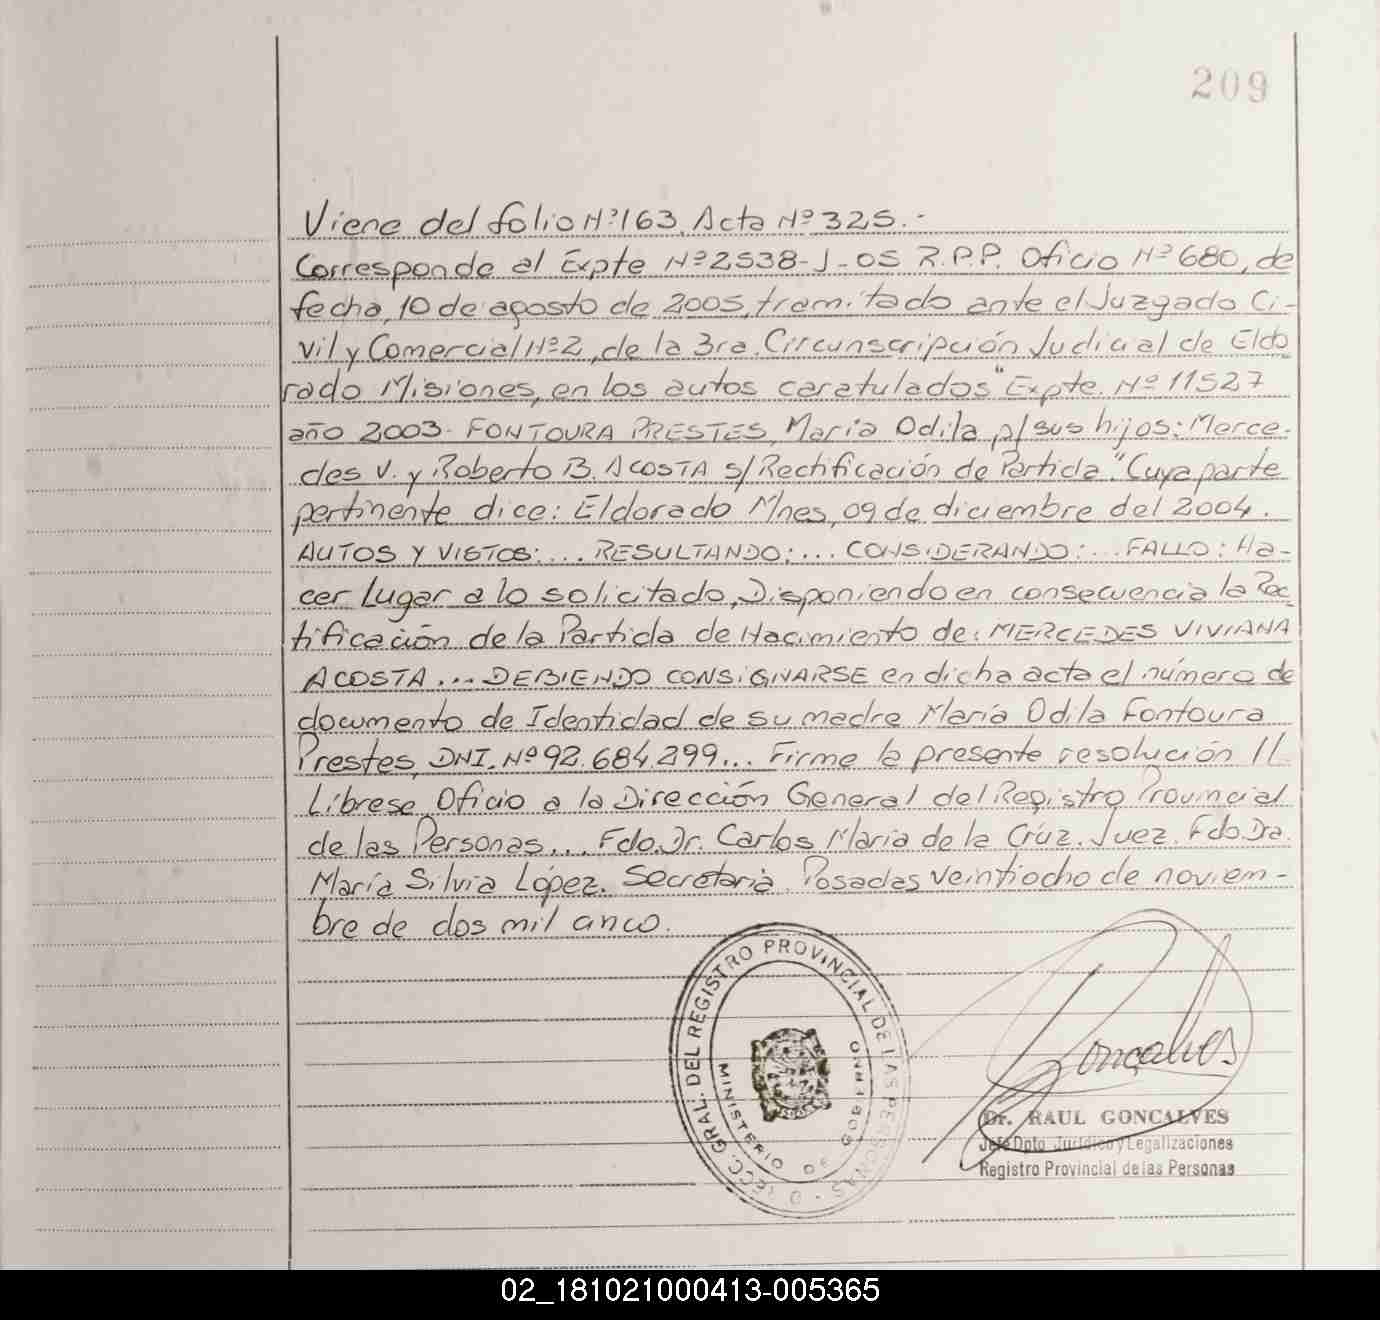 209
Viene del folio Nº163, Acta Nº325.-
Corresponde al Expte Nº2538-J-05 R.P.P. Oficio Nº680, de
fecha, 10 de agosto de 2005, tramitado ante el Juzgado Ci-
vil y Comercial Nº2, de la 3ra. Circunscripción Judicial de Eldo
rado Misiones, en los autos caratulados "Expte. Nº 11527
año 2003- FONTOURA PRESTES, María Odila p/ sus hijos: Merce-
des V. y Roberto B. ACOSTA s/ Rectificación de Partida". Cuya parte
pertinente dice: Eldorado Mnes, 09 de diciembre del 2004.
AUTOS Y VISTOS:... RESULTANDO:... CONSIDERANDO:... FALLO: Ha-
cer Lugar a lo solicitado, Disponiendo en consecuencia la Rec
tificación de la Partida de Nacimiento de: MERCEDES VIVIANA
ACOSTA... DEBIENDO CONSIGNARSE en dicha acta el número de
documento de Identidad de su madre María Odila Fontoura
Prestes, DNI. Nº 92.684.299... Firme la presente resolución II
Líbrese Oficio a la Dirección General del Registro Provincial
de las Personas... Fdo. Dr. Carlos María de la Crúz. Juez. Fdo. Dra.
María Silvia López. Secretaria. Posadas veintiocho de noviem-
bre de dos mil cinco.
DIRECC. GRAL. DEL REGISTRO PROVINCIAL DE LAS PERSONAS -
MINISTERIO DE GOBIERNO
Goncalves
Dr. RAUL GONCALVES
Jefe Dpto Jurídico y Legalizaciones
Registro Provincial de las Personas
02_181021000413-005365